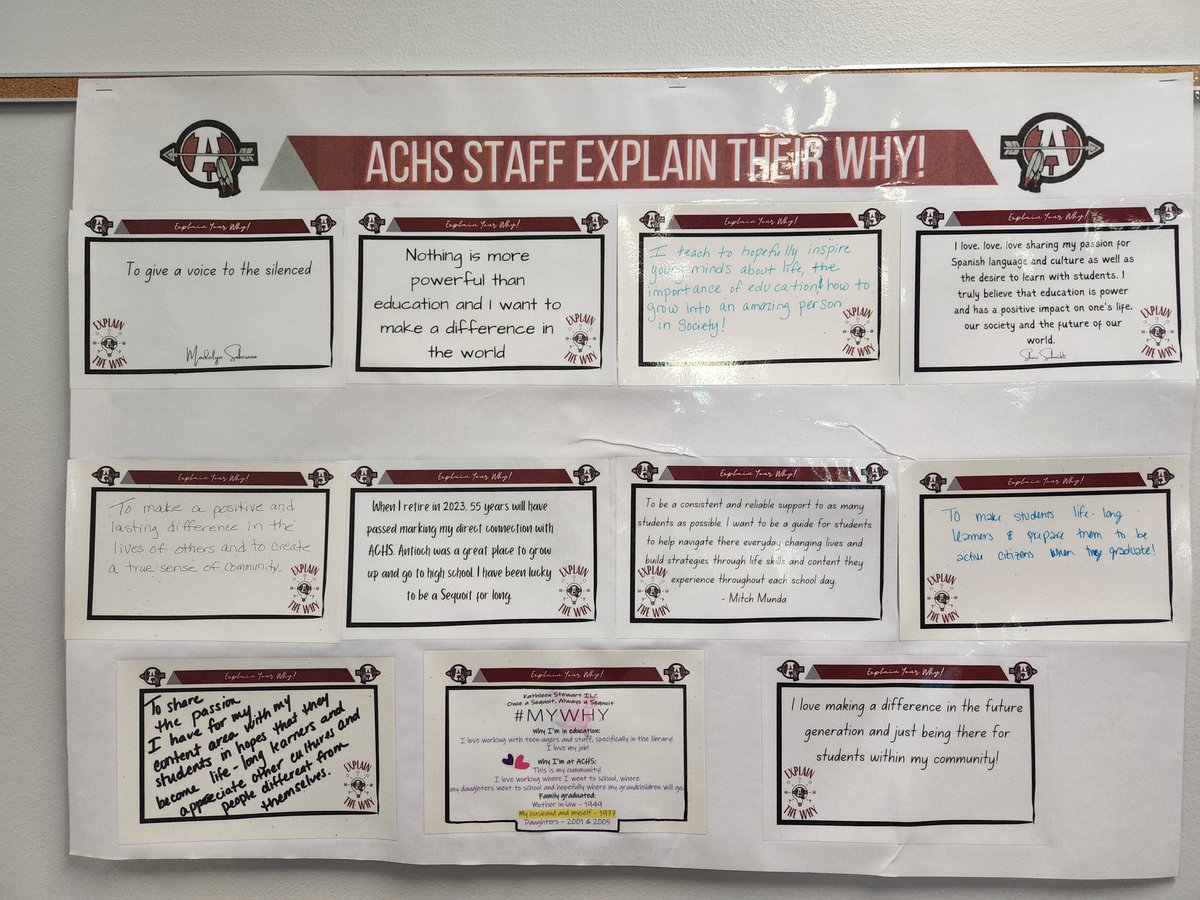 ACHS STAFF EXPLAIN THEIR WHY!
Explain Your Why!
To give a voice to the silenced
EXPLAIN
THE WHY
Explain Your Why!
Nothing is more
powerful than
education and I want to
make a difference in
the world
EXPLAIN
THE WHY
Explain Your Why!
I teach to hopefully inspire
young minds about life, the
importance of education & how to
grow into an amazing person
in Society!
EXPLAIN
THE WHY
Explain Your Why!
I love. love. love sharing my passion for
Spanish language and culture as well as
the desire to learn with students. I
truly believe that education is power
and has a positive impact on one's life,
our society and the future of our
world.
EXPLAIN
THE WHY
Explain Your Why!
To make a positive and
lasting difference in the
lives of others and to create
a true sense of Community.
EXPLAIN
THE WHY
Explain Your Why!
When I retire in 2023, 55 years will have
passed marking my direct connection with
ACHS. Antioch was a great place to grow
up and go to high school. I have been lucky
to be a Sequoit for long.
EXPLAIN
THE WHY
Explain Your Why!
To be a consistent and reliable support to as many
students as possible. I want to be a guide for students
to help navigate there everyday changing lives and
build strategies through life skills and content they
experience throughout each school day.
- Mitch Munda
EXPLAIN
THE WHY
Explain Your Why!
To make students life-long
learners & prepare them to be
active citizens when they graduate!
EXPLAIN
THE WHY
Explain Your Why!
To share
the passion
I have for my
content area with my
students in hopes that they
become life-long learners and
appreciate other cultures and
people different from
themselves.
EXPLAIN
THE WHY
Explain Your Why!
Kathleen Stewart ILC
Once a Sequoit, Always a Sequoit
#MYWHY
Why I'm in education:
I love working with teen-agers and staff, specifically in the library!
I love my job!
Why I'm at ACHS:
This is my community!
I love working where I went to school, where
my daughters went to school and hopefully where my grandchildren will go.
Family graduated:
Mother in-law - 1949
My husband and myself - 1977
Daughters - 2001 & 2005
Explain Your Why!
I love making a difference in the future
generation and just being there for
students within my community!
EXPLAIN
THE WHY